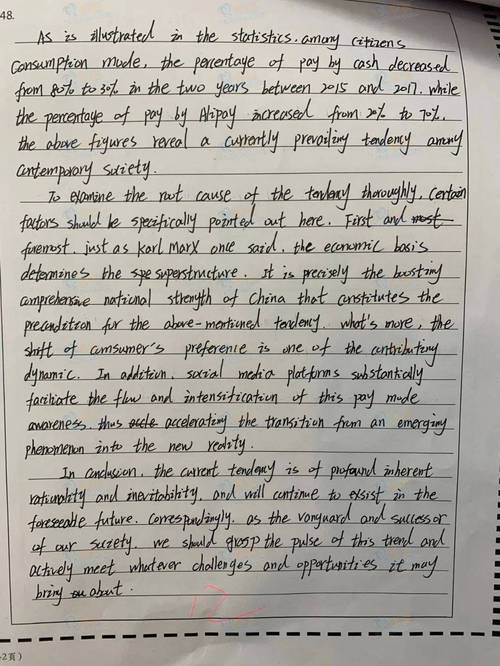 48.
As is illustrated in the statistics, among citizens
consumption mode, the percentage of pay by cash decreased
from 80% to 30% in the two years between 2015 and 2017, while
the percentage of pay by Alipay increased from 20% to 70%,
the above figures reveal a currently prevailing tendency among
contemporary society.
To examine the root cause of the tendency thoroughly, certain
factors should be specifically pointed out here. First and most
foremost, just as Karl Marx once said, the economic basis
determines the spe superstructure. It is precisely the boosting
comprehensive national strength of China that constitutes the
precondition for the above-mentioned tendency. what's more, the
shift of comsumer's preference is one of the contributing
dynamic. In addition, social media platforms substantially
faciliate the flow and intensitification of this pay mode
awareness, thus accelerating the transition from an emerging
phenomenon into the new reality.
In conclusion, the current tendency is of profound inherent
rationality and inevitability, and will continue to exsist in the
foreseeable future. Correspondingly, as the vanguard and successor
of our society, we should grasp the pulse of this trend and
actively meet whatever challenges and opportunities it may
bring about.
12
2頁)